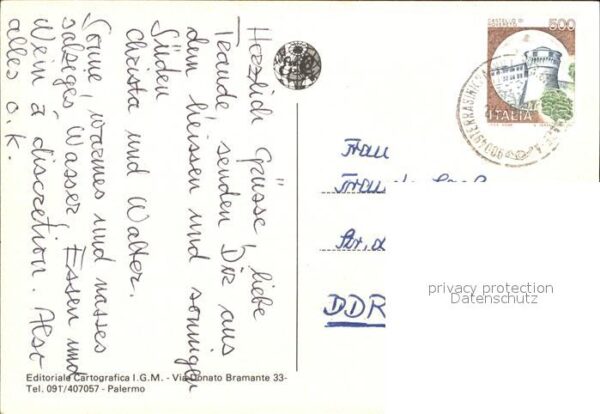 Herzlich Grüsse, liebe
Traude senden Dir aus
dem heissen und sonnigen
Süden
Christa und Walter.
Sonne, warmes und nasses
salziges Wasser, Essen und
Wein à discretion. Also
alles o.k.
CASTELLO DI
ROVERETO
500
ITALIA
90049 TERRASINI
Frau
DDR
privacy protection
Datenschutz
Editoriale Cartografica I.G.M. - Via Donato Bramante 33-
Tel. 091/407057 - Palermo